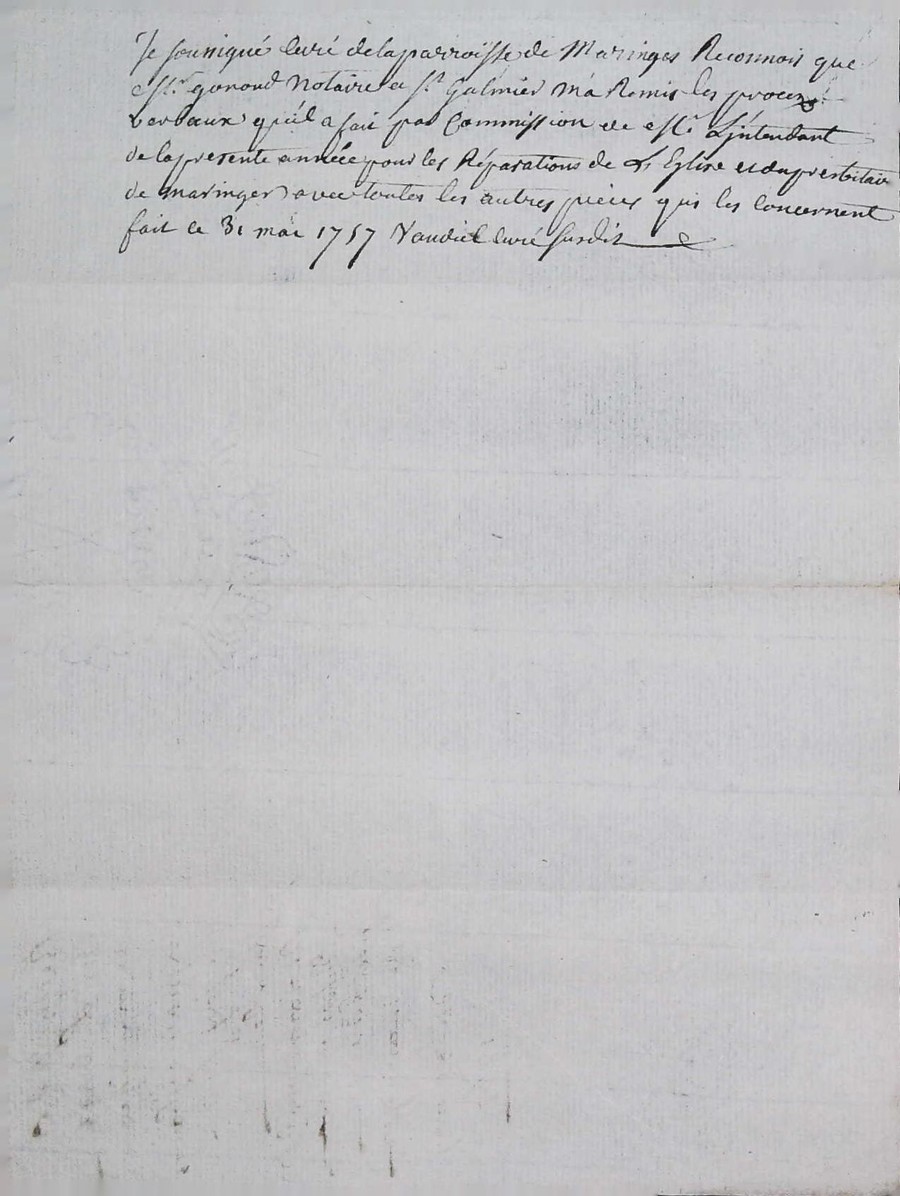 Je sousigné Curé de la parroisse de Maringes Reconnois que
Mr. gonond Notaire a St. Galmier m'a Remis les procez
verbaux qu'il a fait par Commission de Mr. L'jntendant
de la presente année pour les Réparations de L'Eglise et du presbitaire
de Maringes avec toutes les autres pieces qui les Concernent
fait ce 31 mai 1757 Curé susdit